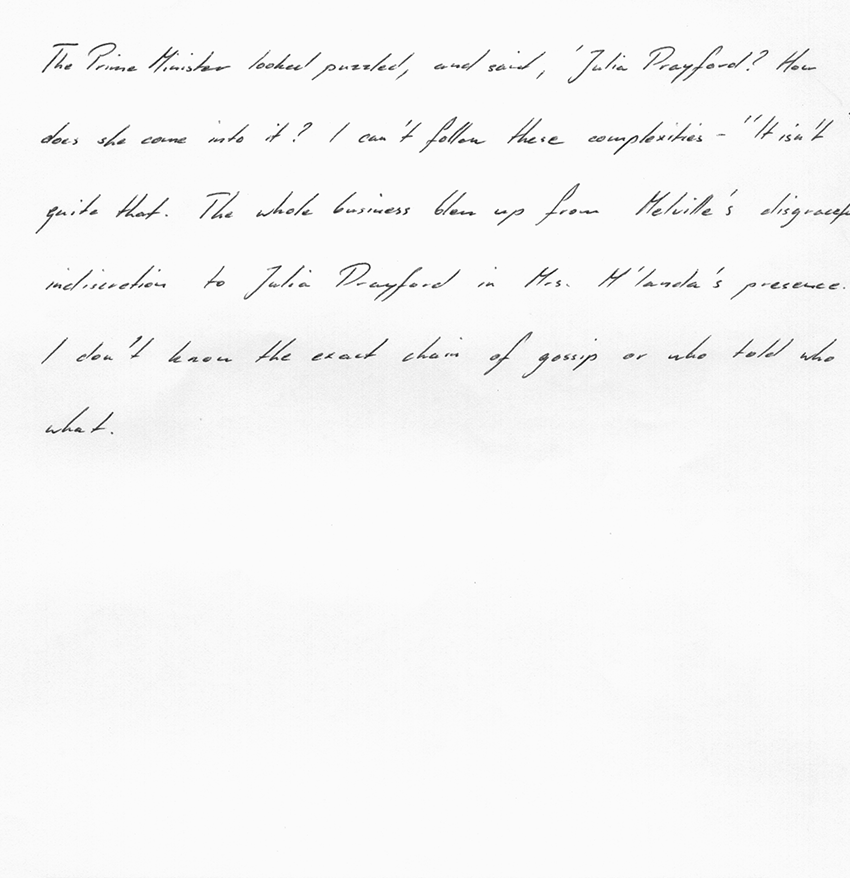 The Prime Minister looked puzzled, and said, 'Julia Drayford? How
does she come into it? I can't follow these complexities - "It isn't
quite that. The whole business blew up from Melville's
indiscretion to Julia Drayford in Mrs. M'landa's presence.
I don't know the exact chain of gossip or who told who
what.